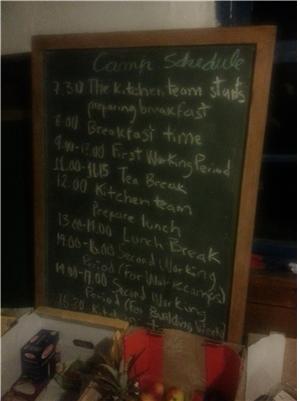 Camp Schedule
7.30 The kitchen team starts
preparing breakfast
8.00 Breakfast time
9.00-13.00 First Working Period
11.00-11.15 Tea Break
12.00 Kitchen team
Prepare lunch
13.00-14.00 Lunch Break
14.00-16.00 Second Working
Period (For Workcamps)
14.00-17.00 Second Working
Period (For Building Weeks)
Kitchen